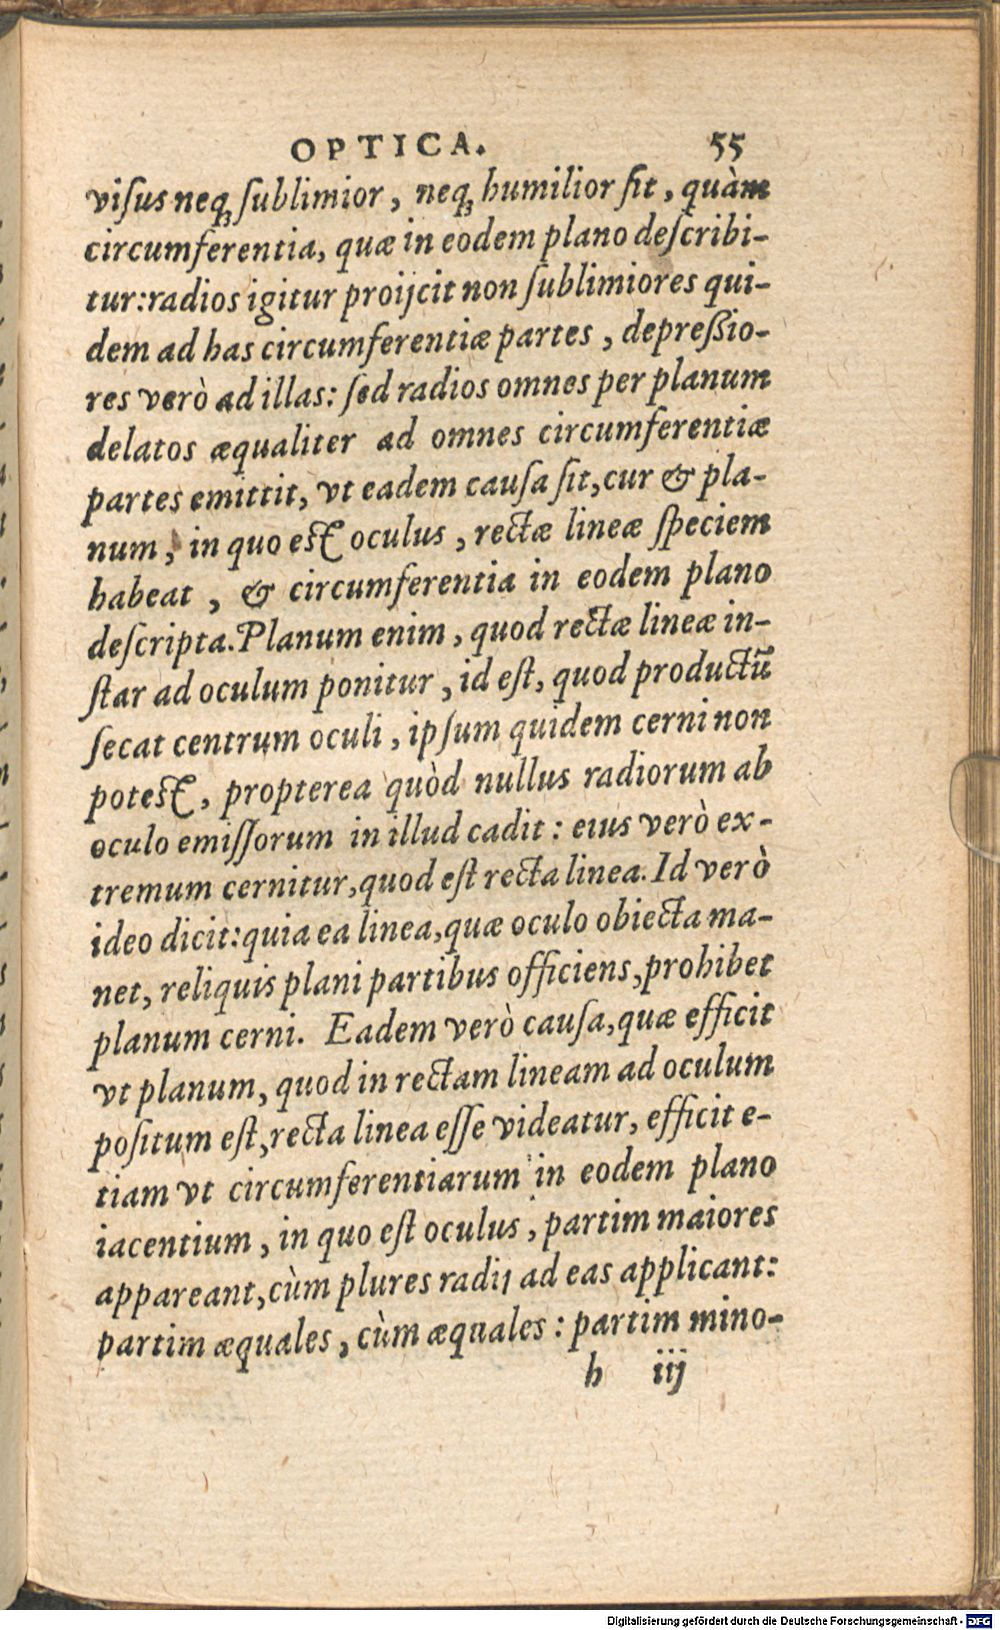 OPTICA. 55
viſus neqꝫ ſublimior, neqꝫ humilior ſit, quàm
circumferentia, quæ in eodem plano deſcribi-
tur: radios igitur proijcit non ſublimiores qui-
dem ad has circumferentiæ partes, depreßio-
res verò ad illas: ſed radios omnes per planum
delatos æqualiter ad omnes circumferentiæ
partes emittit, vt eadem cauſa ſit, cur & pla-
num, in quo eſt oculus, rectæ lineæ ſpeciem
habeat, & circumferentia in eodem plano
deſcripta. Planum enim, quod rectæ lineæ in-
ſtar ad oculum ponitur, id eſt, quod productũ
ſecat centrum oculi, ipſum quidem cerni non
poteſt, propterea quòd nullus radiorum ab
oculo emiſſorum in illud cadit: eius verò ex-
tremum cernitur, quod eſt recta linea. Id verò
ideo dicit: quia ea linea, quæ oculo obiecta ma-
net, reliquis plani partibus officiens, prohibet
planum cerni. Eadem verò cauſa, quæ efficit
vt planum, quod in rectam lineam ad oculum
poſitum eſt, recta linea eſſe videatur, efficit e-
tiam vt circumferentiarum in eodem plano
iacentium, in quo eſt oculus, partim maiores
appareant, cùm plures radij ad eas applicant:
partim æquales, cùm æquales: partim mino-
h iij
Digitalisierung gefördert durch die Deutsche Forschungsgemeinschaft - DFG